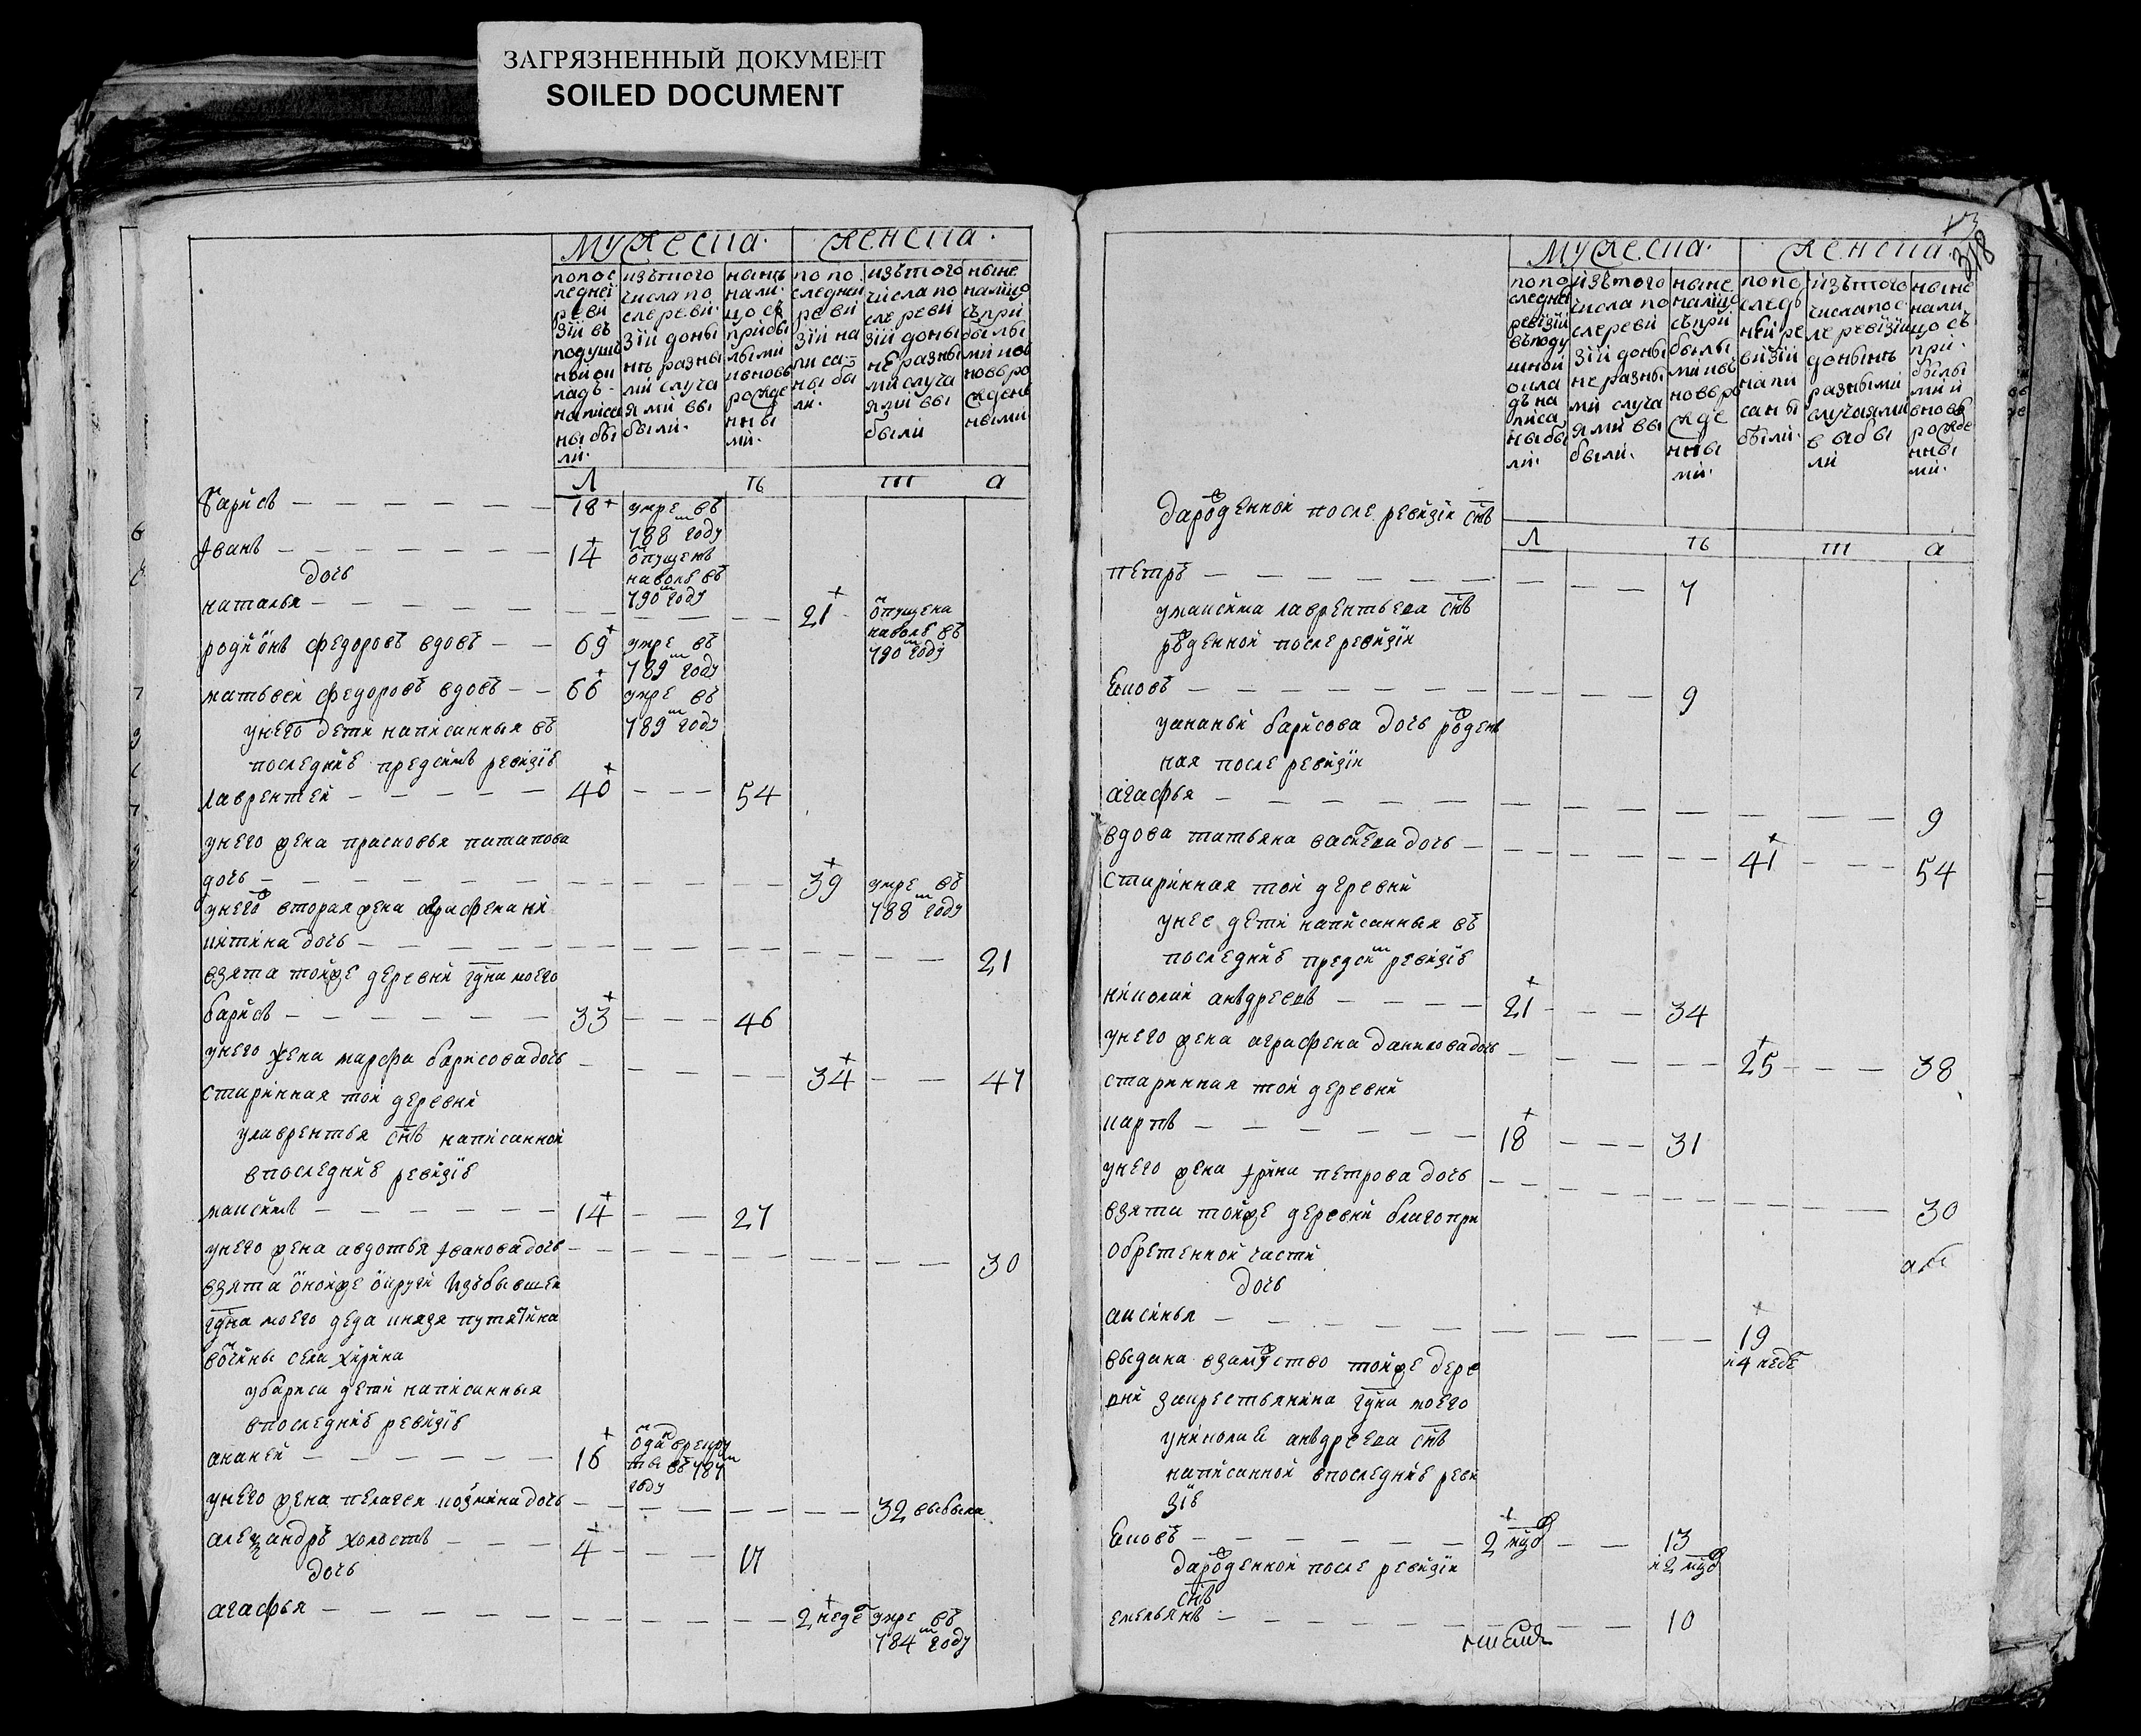 ЗАГРЯЗНЕННЫЙ ДОКУМЕНТ
SOILED DOCUMENT
мужеска. женска.
попос ледней реви зіи въ подушн ной ок ладъ написа ны бы ли.
изътого числа по слереви зіи доны нѣ разны ми случа ями вы были.
нынѣ нали цо съ прибы лыми ивновь рожде нны ми.
по по следней реви зіи на писа ны бы ли.
изътого числа по слереви зіи доны не разны мислуча ями вы были
ныне налицо съпри былы миив новьро жденн ными
Л ть ш а
барисъ 18 умре въ
788м году
иванъ 14 отпущенъ
дочь наволю въ
790м году
наталья 21 отпущена
наволю въ
790м году
родионъ федоровъ вдовъ 69 умре въ
789м году
матьвей федоровъ вдовъ 66 умре въ
789м году
унего дети написанныя въ
последней предсимъ ревизіе
лаврентей 40 54
унего жена прасковья патапова
дочь 39 умре въ
788м году
унегож вторая жена аграфена ни
китина дочь 21
взята тойже деревни гдна моего
барисъ 33 46
унего жена марфа барисова дочь 34 47
старинная той деревни
улаврентья снъ написанной
впоследней ревизіе
максимъ 14 27
унего жена авдотья иванова дочь 30
взята оной же округи изъбывшей
гдна моего деда князя путятина
вотчины села хирина
убариса дети написанныя
впоследней ревизіе
ананей 16 отдан врекру
ты въ 787м
году
унего жена пелагея козмина дочь 32 выбыла
александръ холостъ 4 17
дочь
агафья 2 неде умре въ
784м году
318
мужеска. женска.
попо следней ревизіи въподу шной окла дъ на писа ны бы ли.
изътого числа по слереви зіи доны не разны ми случа ями вы были.
ныне налицо съпри былы миивъ новьро жде нны ми.
попо следъ ней ре визіи напи саны были.
изътого числапос ле ревизіи донынѣ разными случаями выбы ли
ныне нали цо съ при былы ми и вновь рожде нны ми.
дарожденной после ревизіи снъ
Л ть ш а
петръ 7
умаксима лаврентьева снъ
рожденной после ревизіи
яковъ 9
уананьи барисова дочь рожден
ная после ревизіи
агафья 9
вдова татьяна васильева дочь 41 54
старинная той деревни
унее дети написанныя въ
последней предсим ревизіе
николай андреевъ 21 34
унего жена аграфена данилова дочь 25 38
старинная той деревни
карпъ 18 31
унего жена ирина петрова дочь 30
взята тойже деревни благопри
обретенной части
дочь
аксинья 19
и 4 неде
выдана взамужство тойже дере
вни закрестьянина гдна моего
униколая андреева снъ
написанной впоследней реви
зіе
яковъ 2 мцоъ 13
и 2 мцоъ
дарожденной после ревизіи
снъ
емельянъ 10